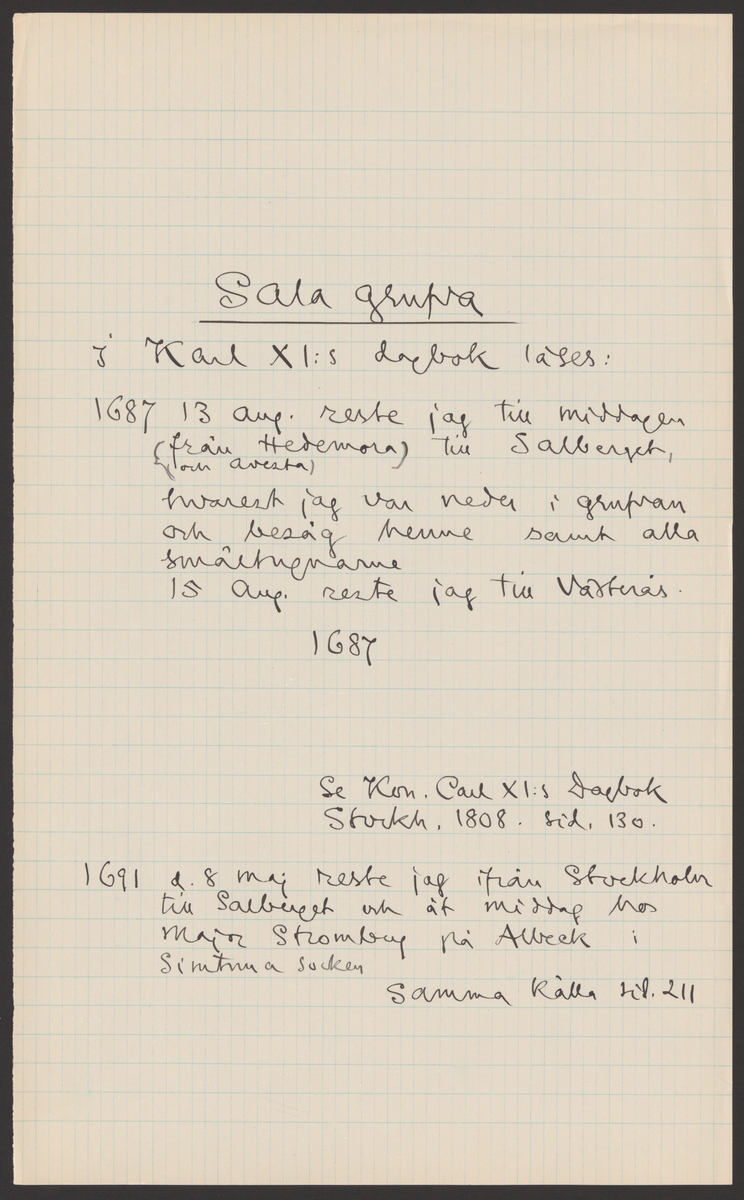 Sala grufva
I Karl XI:s dagbok läses:
1687 13 Aug. reste jag till middagen
(från Hedemora) till Salberget,
(och Avesta)
hvarest jag var neder i grufvan
och besåg henne samt alla
smältugnarne
15 Aug. reste jag till Västerås.
1687
Se Kon. Carl XI:s Dagbok
Stockh. 1808. sid. 130.
1691 d. 8 maj reste jag ifrån Stockholm
till Salberget och åt middag hos
Major Stromberg på Albeck i
Simtuna socken
Samma källa sid. 211